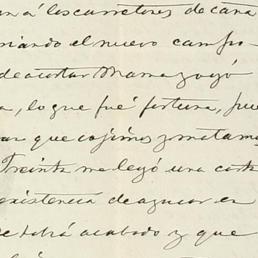 n á los carretores de cana
niando el nuevo campo-
de acostar Mama
a, lo que fué fortuna, pue
que cojimos y matamos
Treinta me leyó una carta
existencia de azucar en
se habrá acabado y que